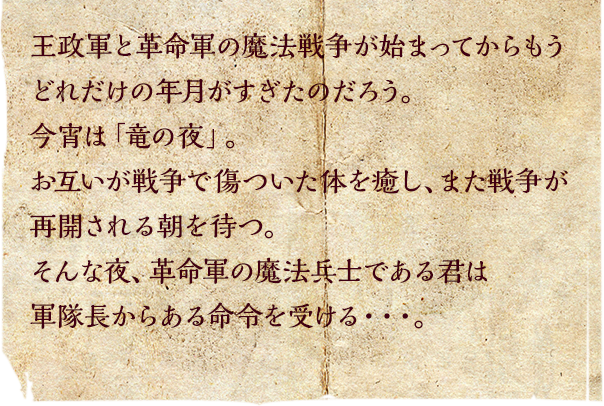 王政軍と革命軍の魔法戦争が始まってからもう
どれだけの年月がすぎたのだろう。
今宵は「竜の夜」。
お互いが戦争で傷ついた体を癒し、また戦争が
再開される朝を待つ。
そんな夜、革命軍の魔法兵士である君は
軍隊長からある命令を受ける・・・。